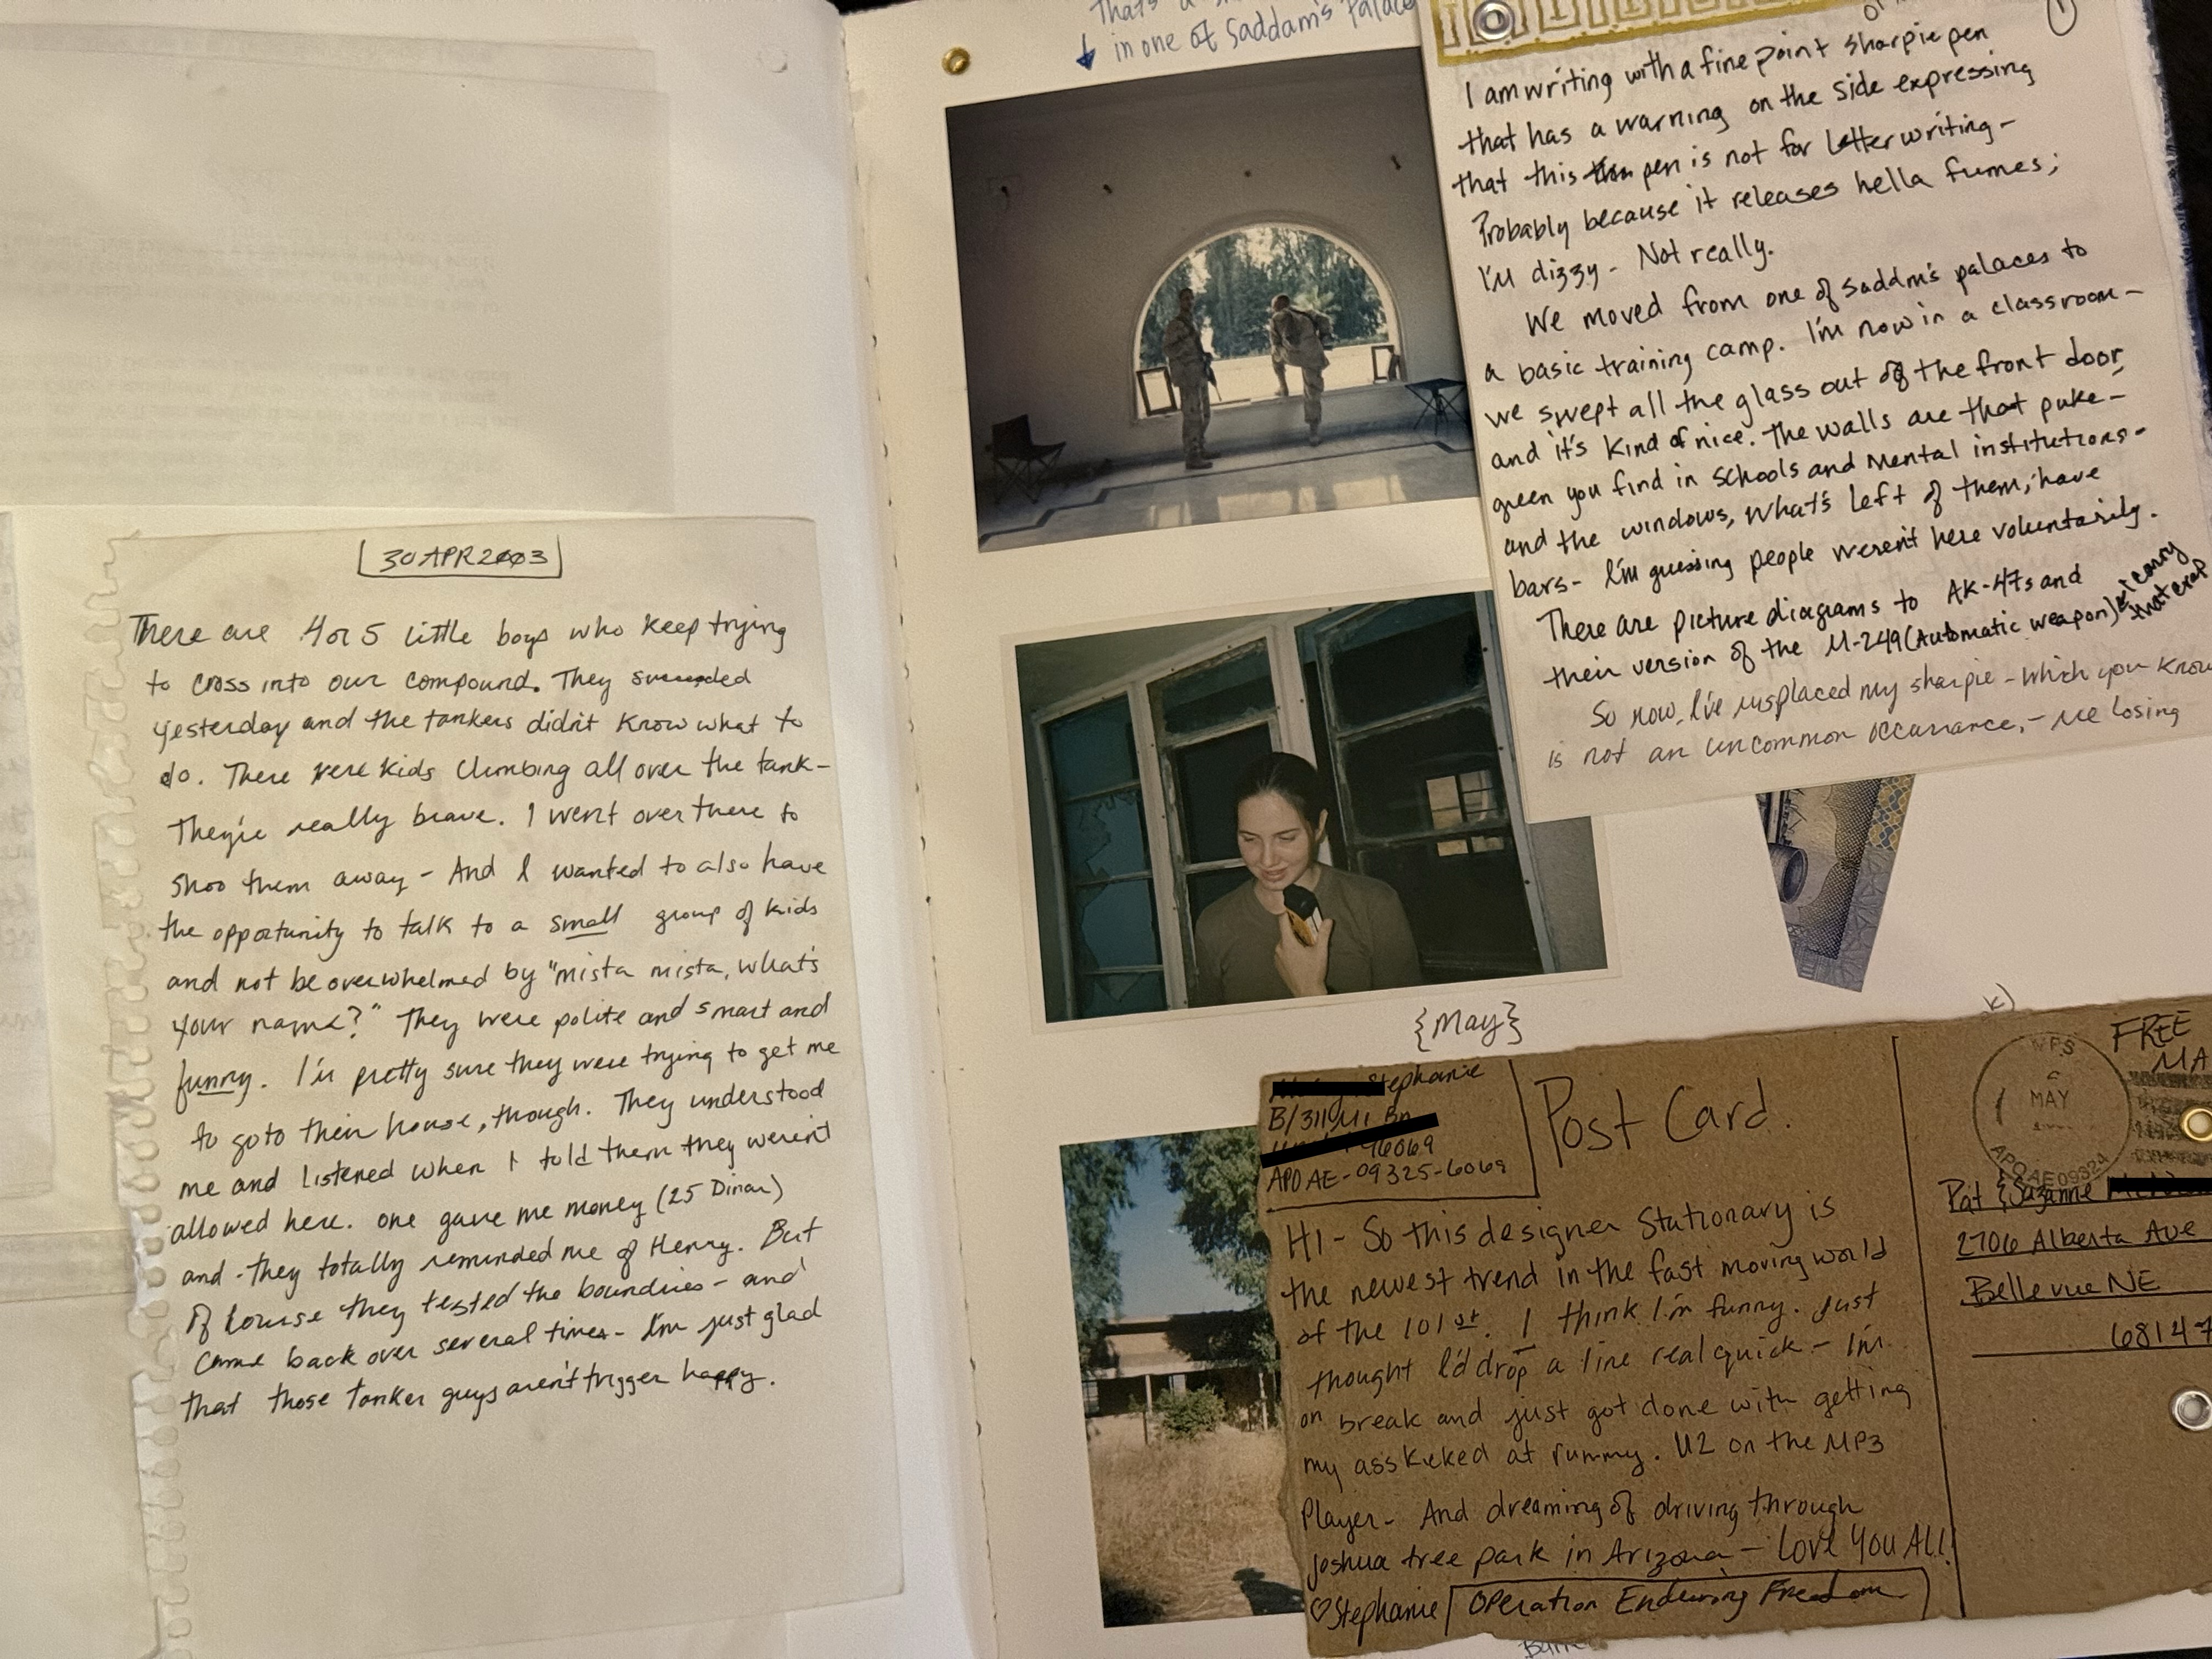 [30 APR 2003]
There are 4 or 5 little boys who keep trying
to cross into our compound. They succeded
yesterday and the tankers didn't know what to
do. There were kids climbing all over the tank-
They're really brave. I went over there to
shoo them away - And I wanted to also have
the opportunity to talk to a small group of kids
and not be overwhelmed by "mista mista, what's
your name?" They were polite and smart and
funny. I'm pretty sure they were trying to get me
to go to their house, though. They understood
me and listened when I told them they weren't
allowed here. One gave me money (25 Dinar)
and - they totally reminded me of Henry. But
of course they tested the boundries - and
came back over several times - I'm just glad
that those tanker guys aren't trigger happy.
That's a
in one of Saddam's Palace
1
I am writing with a fine point sharpie pen
that has a warning on the side expressing
that this pen is not for letter writing -
Probably because it releases hella fumes;
I'm dizzy - Not really.
We moved from one of Saddm's palaces to
a basic training camp. I'm now in a classroom -
we swept all the glass out of the front door,
and it's kind of nice. The walls are that puke -
green you find in schools and mental institutions -
and the windows, what's left of them, have
bars - I'm guessing people weren't here voluntarily.
There are picture diagrams to AK-47s and
their version of the M-249 (Automatic weapon) I carry
that crap
So now, I've misplaced my sharpie - which you know
is not an uncommon occurrance, - me losing
{May}
Stephanie
B/311 MI Bn
96069
APO AE - 09325-6069
Post Card.
FREE
MA
MPS
MAY
APO AE 09324
Pat & Suzanne
2706 Alberta Ave
Bellevue NE
68147
HI - So this designer Stationary is
the newest trend in the fast moving world
of the 101st. I think I'm funny. Just
thought I'd drop a line real quick - I'm
on break and just got done with getting
my ass kicked at rummy. U2 on the MP3
Player - And dreaming of driving through
Joshua tree park in Arizona - Love You All!
♡Stephanie [Operation Enduring Freedom